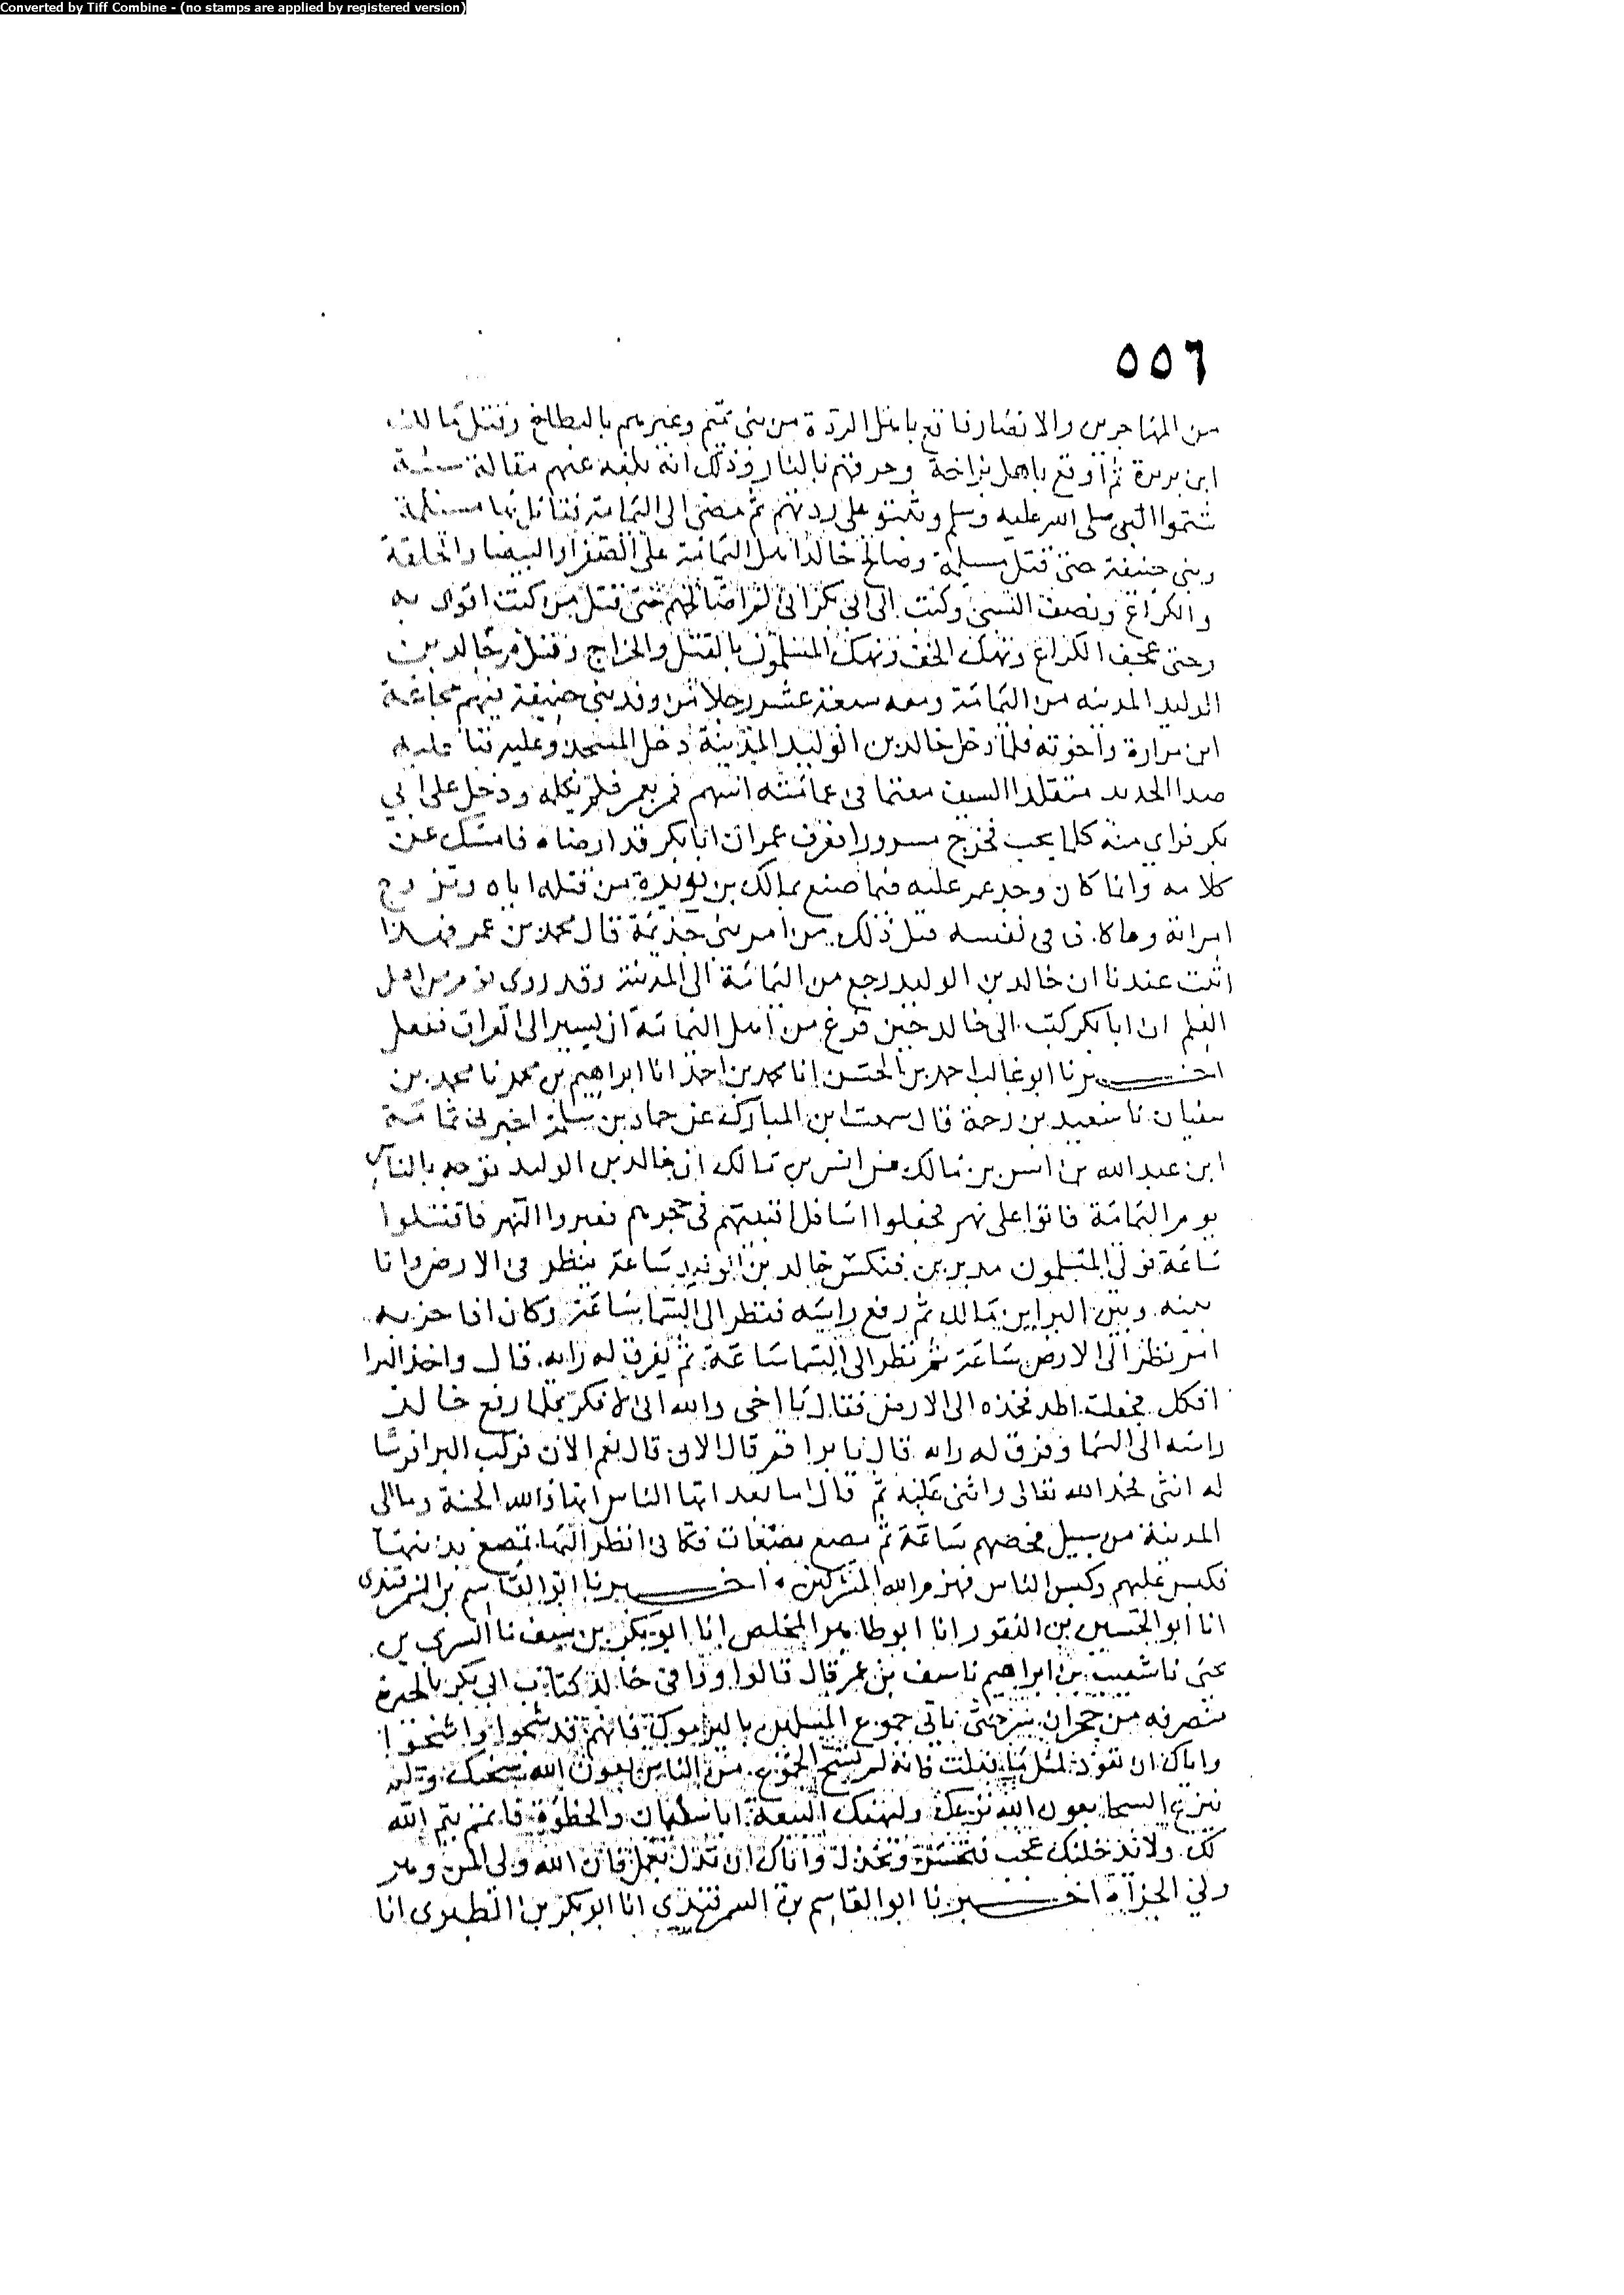 Converted by Tiff Combine - (no stamps are applied by registered version)
٥٥٦
من المهاجرين والانصار فاوقع باهل الردة من بني تميم وغيرهم بالبطاح وقتل مالك
ابن نويرة ثم اوقع باهل بزاخة وحرقهم بالنار وذلك انه بلغه عنهم مقالة سيئة
شتموا النبي صلى الله عليه وسلم وثبتو على ردتهم ثم مضى الى اليمامة فقاتل بها مسيلمة
وبني حنيفة حتى قتل مسيلمة وصالح خالد اهل اليمامة على الصفرا والبيضا والحلقة
والكراع ونصف السبي وكتب الى ابي بكر اني لم اصالحهم حتى قتل من كنت اقوى به
وحتى عجف الكراع ونهك الخف ونهك المسلمون بالقتل والجراح وقدم خالد بن
الوليد المدينه من اليمامة ومعه سبعة عشر رجلا من وفد بني حنيفة فيهم مجاعة
ابن مرارة واخوته فلما دخل خالد بن الوليد المدينة دخل المسجد وعليه قبا عليه
صدا الحديد متقلدا السيف معتما في عمامته اسهم فمر بعمر فلم يكلمه ودخل على ابي
بكر فراي منه كلما يحب فخرج مسرورا فعرف عمر ان ابا بكر قد ارضاه فامسك عن
كلامه وانما كان وجد عمر عليه فيما صنع بمالك بن نويرة من قتله اياه وتزوج
امراته وما كان في نفسه قبل ذلك من امر بني جذيمة قال محمد بن عمر فهذا
اثبت عندنا ان خالد بن الوليد رجع من اليمامة الى المدينة وقد روى قوم من اهل
العلم ان ابا بكر كتب الى خالد حين فرغ من اهل اليمامة ان يسير الى العراق ففعل
اخبرنا ابو غالب احمد بن الحسن انا محمد بن احمد انا ابراهيم بن محمد نا محمد بن
سفيان نا سعيد بن رحمة قال سمعت ابن المبارك عن حماد بن سلمة اخبرني ثمامة
ابن عبد الله بن انس بن مالك عن انس بن مالك ان خالد بن الوليد توجه بالناس
يوم اليمامة فاتوا على نهر فجعلوا اسافل اقبيتهم في حجزهم فعبروا النهر فاقتتلوا
ساعة فولى المسلمون مدبرين فنكس خالد بن الوليد ساعة ينظر في الارض وانا
بينه وبين البرا بن مالك ثم رفع راسه فنظر الى السما ساعة وكان اذا حزبه
امر نظر الى الارض ساعة ثم نظر الى السما ساعة ثم يفرق له رايه قال واخذ البرا
افكل فجعلت الحد فخذه الى الارض فقال يا اخي والله اني لا فكر فلما رفع خالد
راسه الى السما وفرق له رايه قال يا برا قم قال الان قال نعم الان فركب البرا فرسا
له انثى فحمد الله تعالى واثنى عليه ثم قال اما بعد ايها الناس انها والله الجنة وما الى
المدينة من سبيل فحضهم ساعة ثم مصع مصعات فكاني انظر اليها تمصع بذنبها
فكبس عليهم وكبس الناس فهزم الله المشركين ، اخبرنا ابو القاسم بن السمرقندي
انا ابو الحسين بن النقور انا ابو طاهر المخلص انا ابو بكر بن سيف نا السري بن
يحيى نا شعيب بن ابراهيم نا سيف بن عمر قال قالوا ووافى خالد كتاب ابي بكر بالحيرة
منصرفه من حجه ان سر حتى تاتي جموع المسلمين باليرموك فانهم قد شجوا واشجوا
واياك ان تعود لمثل ما فعلت فانه لم يشج الجموع من الناس بعون الله شجيك ولم
ينزع الشجا بعون الله نزعك وليهنك النيه ابا سليمان والحظوة فاتمم يتم الله
لك ولا يدخلنك عجب فتخسر وتخذل واياك ان تدل بعمل فان الله ولي المن وهو
ولي الجزا ، اخبرنا ابو القاسم بن السمرقندي انا ابو بكر بن الطبري انا